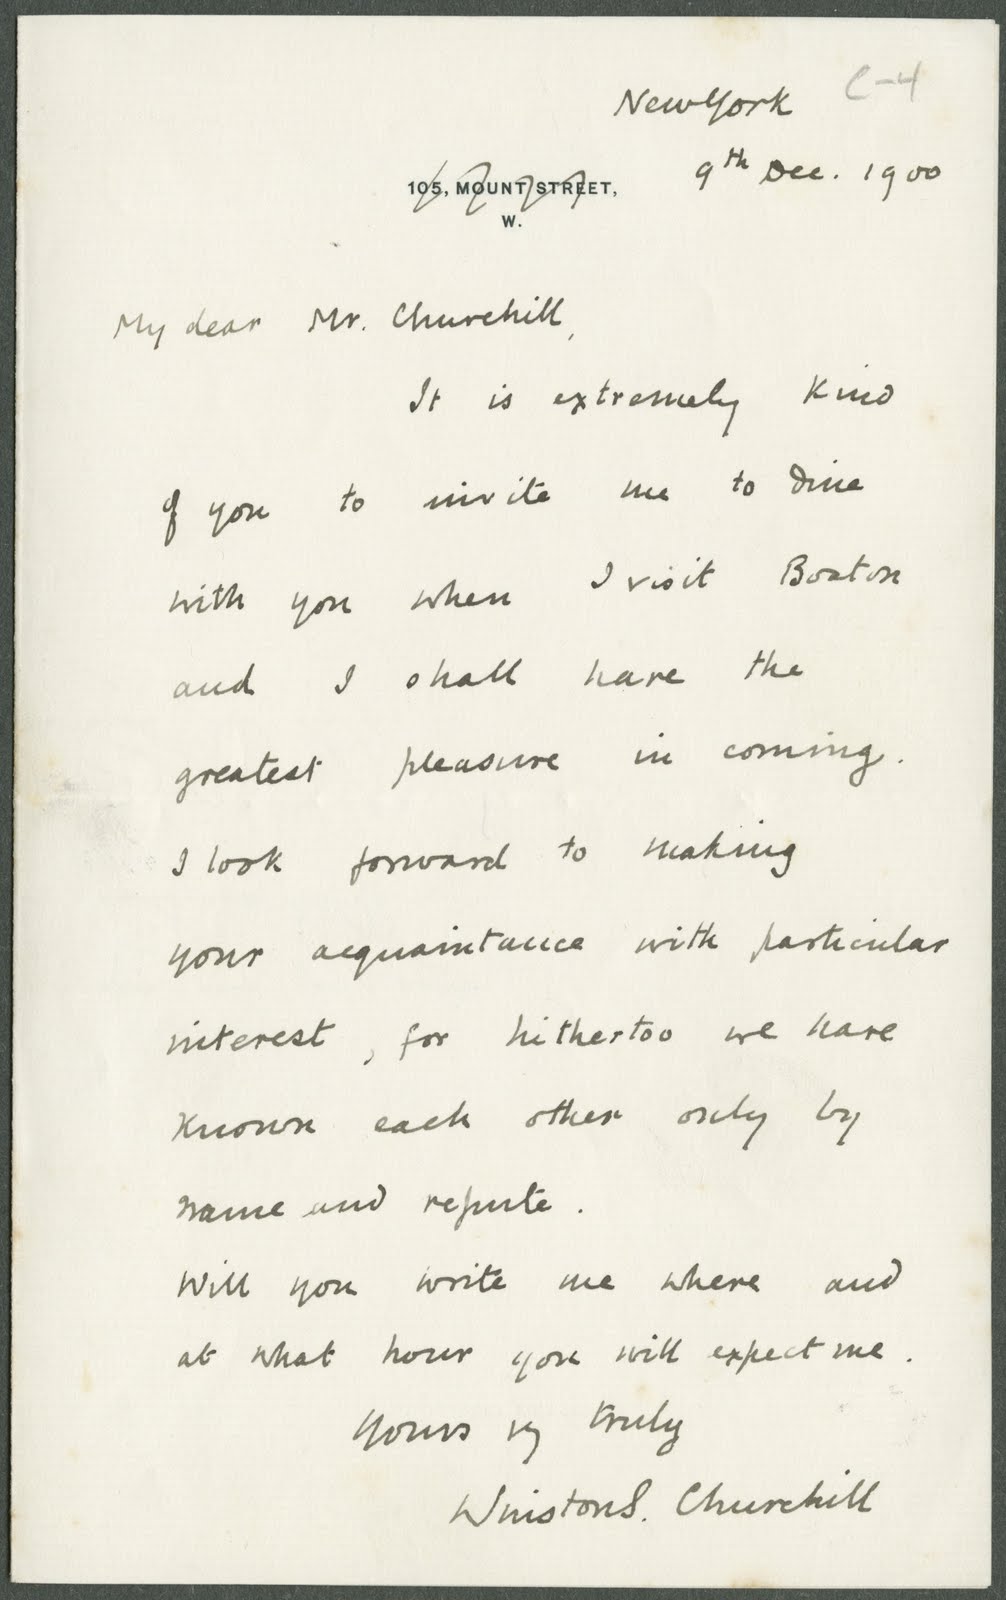 C-4
New York
9th Dec. 1900
105, MOUNT STREET,
W.
My dear Mr. Churchill,
It is extremely kind
of you to invite me to dine
with you when I visit Boston
and I shall have the
greatest pleasure in coming.
I look forward to making
your acquaintance with particular
interest, for hithertoo we have
known each other only by
name and repute.
Will you write me where and
at what hour you will expect me.
Yours vy truly
Winston S. Churchill